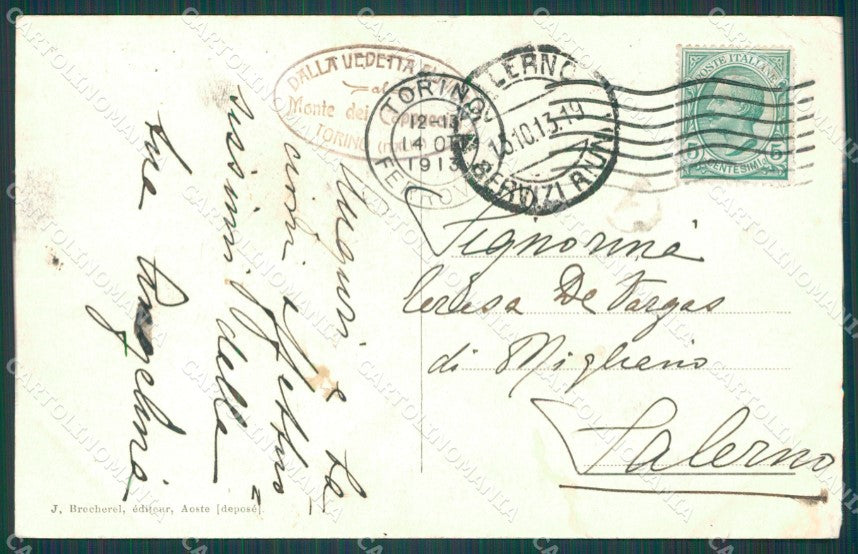 DALLA VEDETTA
al
Monte dei Cappuccini
TORINO
TORINO
12-13
14 OTT
1913
FERROVIA
SALERNO
15.10.13.19
SERVIZI RIUNITI
POSTE ITALIANE
5 CENTESIMI 5
Auguri e ba
cini affettuo=
sissimi dalla
tua Angelina
Signorina
Teresa De Vargas
di Migliano
Salerno
J. Brecherel, éditeur, Aoste [deposé].
CARTOLINOMANIA